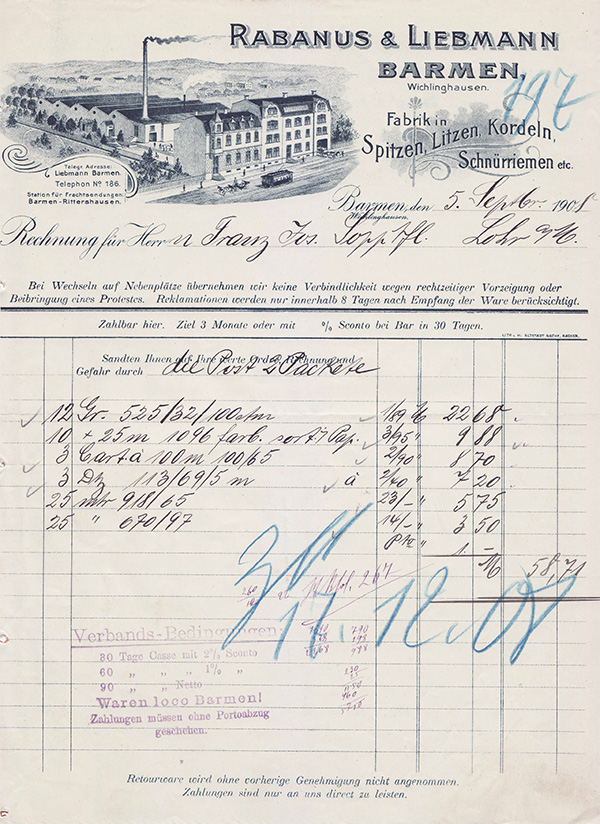 RABANUS & LIEBMANN
BARMEN,
Wichlinghausen.
197
Fabrik in
Spitzen, Litzen, Kordeln,
Schnürriemen etc.
Telegr. Adresse:
Liebmann Barmen.
Telephon No 186.
Station für Frachtsendungen:
Barmen-Rittershausen.
Barmen, den 5. Septbr. 1908
Wichlinghausen.
Rechnung für Herrn Franz Jos. Sopp Lohr a/M.
Bei Wechseln auf Nebenplätze übernehmen wir keine Verbindlichkeit wegen rechtzeitiger Vorzeigung oder
Beibringung eines Protestes. Reklamationen werden nur innerhalb 8 Tagen nach Empfang der Ware berücksichtigt.
Zahlbar hier. Ziel 3 Monate oder mit % Sconto bei Bar in 30 Tagen.
Sandten Ihnen auf Ihre werte Ordre, Rechnung und
Gefahr durch die Post 2 Packete
12 Gr. 525/32/100 1/89 M 22 68
10 × 25 m 1096 farb. sort. Pap. 3/95 " 9 88
3 Cart à 100 m 100/65 2/90 " 8 70
3 Dtz 113/69/5 m à 2/40 " 7 20
25 mtr 918/65 23/- " 5 75
25 " 670/97 14/- " 3 50
Pto " 1 -
M 58,71
11.12.08
Verbands-Bedingungen
30 Tage Casse mit 2% Sconto
60 „ „ „ 1% „
90 „ „ Netto
Waren loco Barmen!
Zahlungen müssen ohne Portoabzug
geschehen.
Retourware wird ohne vorherige Genehmigung nicht angenommen.
Zahlungen sind nur an uns direct zu leisten.